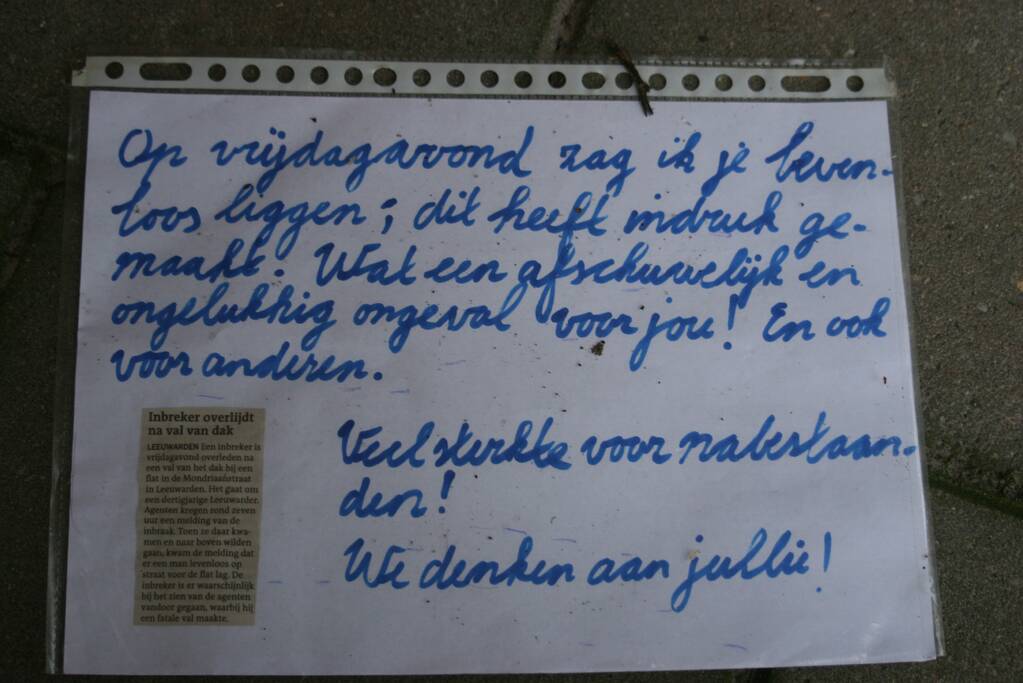 Op vrijdagavond zag ik je leven-
loos liggen; dit heeft indruk ge-
maakt. Wat een afschuwelijk en
ongelukkig ongeval voor jou! En ook
voor anderen.
Inbreker overlijdt
na val van dak
LEEUWARDEN Een inbreker is
vrijdagavond overleden na
een val van het dak bij een
flat in de Mondriaanstraat
in Leeuwarden. Het gaat om
een dertigjarige Leeuwarder.
Agenten kregen rond zeven
uur een melding van de
inbraak. Toen ze daar kwa-
men en naar boven wilden
gaan, kwam de melding dat
er een man levenloos op
straat voor de flat lag. De
inbreker is er waarschijnlijk
bij het zien van de agenten
vandoor gegaan, waarbij hij
een fatale val maakte.
Veel sterkte voor nabestaan-
den!
We denken aan jullie!